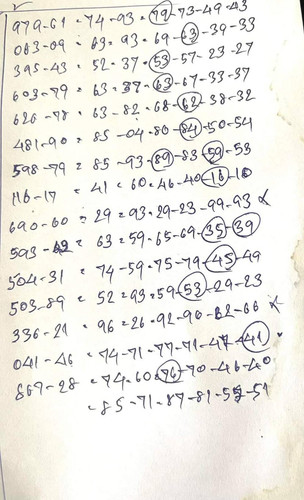 979-61 = 74-93=79-73-49-43
063-09 = 63=93=69-63-39-33
395-43 = 52=37=53-57-23-27
603-79 = 63=37=63-67-33-37
626-78 = 63-82=68-62-38-32
481-90 = 85-04-80-84-50-54
598-79 = 85-93-89-83-59-53
116-17 = 41=60=46-40-16-10
690-60 = 29=93=29-23-99-93 X
593-62 = 63=59=65-69-35-39
504-31 = 74-59=75-79-45-49
503-89 = 52=93=59-53-29-23
336-21 = 96=26=92-96-62-66 X
041-46 = 74-71=77-71-47-41
869-28 = 74=60=76-70-46-40
= 85-71=87-81-57-51